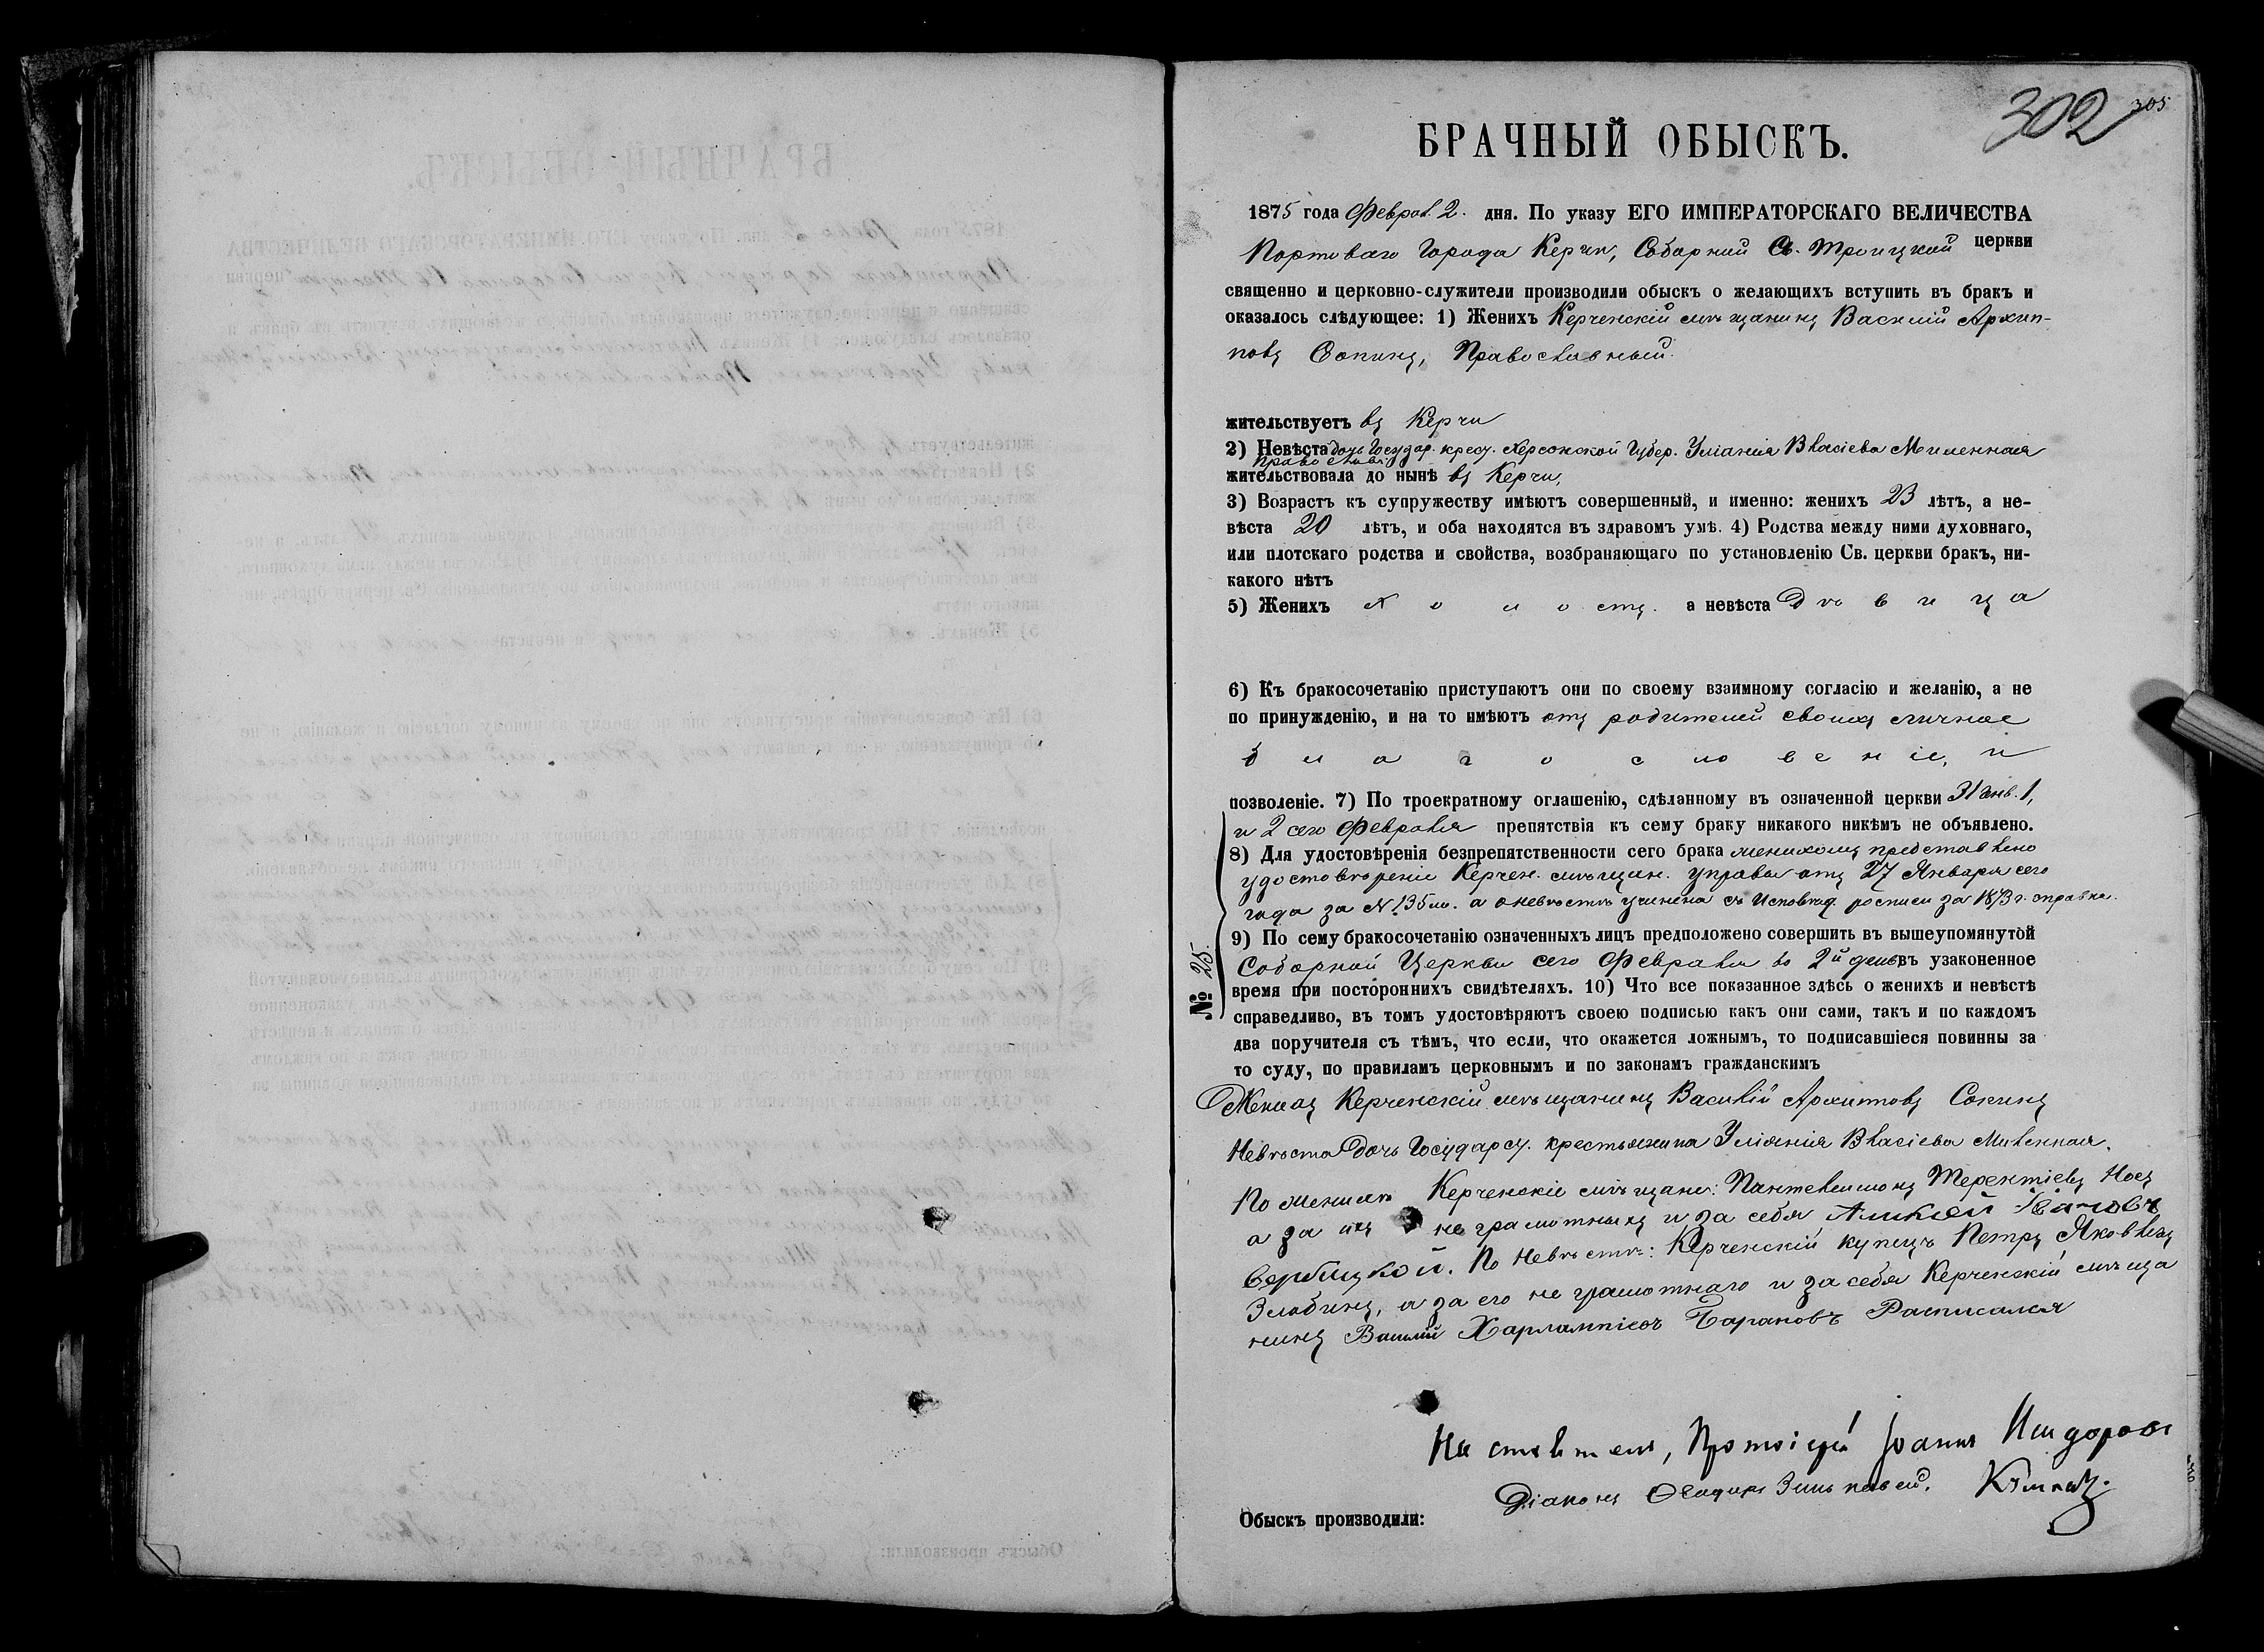 302 305
БРАЧНЫЙ ОБЫСКЪ.
1875 года Феврал. 2. дня. По указу ЕГО ИМПЕРАТОРСКАГО ВЕЛИЧЕСТВА
Портоваго Города Керчи, Соборной Св. Троицкой церкви
священно и церковно-служители производили обыскъ о желающихъ вступить въ бракъ и
оказалось слѣдующее: 1) Женихъ Керченскій мѣщанинъ Василій Архип-
повъ Сопинъ, Православный.
жительствуетъ въ Керчи
2) Невѣста дочь Государ. крест. Херсонской Губер. Уліанія Власіева
Православ.
жительствовала до нынѣ въ Керчи,
3) Возрастъ къ супружеству имѣютъ совершенный, и именно: женихъ 23 лѣтъ, а не-
вѣста 20 лѣтъ, и оба находятся въ здравомъ умѣ. 4) Родства между ними духовнаго,
или плотскаго родства и свойства, возбраняющаго по установленію Св. церкви бракъ, ни-
какого нѣтъ
5) Женихъ холостъ. а невѣста Дѣвица
6) Къ бракосочетанію приступаютъ они по своему взаимному согласію и желанію, а не
по принужденію, и на то имѣютъ отъ родителей своихъ личное
благословеніе, и
позволеніе. 7) По троекратному оглашенію, сдѣланному въ означенной церкви 31 Янв. 1,
и 2 сего Февраля препятствія къ сему браку никакого никѣмъ не объявлено.
8) Для удостовѣренія безпрепятственности сего брака женихомъ представлено
удостовѣреніе Керчен. мѣщан. управы отъ 27 Января сего
года за № 135м. а о невѣстѣ учинена съ Исповѣд. росписи за 1873 г. справка.
9) По сему бракосочетанію означенныхъ лицъ предположено совершить въ вышеупомянутой
Соборной Церкви сего Февраля во 2й день въ узаконенное
№ 25.
время при постороннихъ свидѣтеляхъ. 10) Что все показанное здѣсь о женихѣ и невѣстѣ
справедливо, въ томъ удостовѣряютъ своею подписью какъ они сами, такъ и по каждомъ
два поручителя съ тѣмъ, что если, что окажется ложнымъ, то подписавшіеся повинны за
то суду, по правиламъ церковнымъ и по законамъ гражданскимъ
Женихъ Керченскій мѣщанинъ Василій Архиповъ Сопинъ
Невѣста Дочь Государст. крестьянина Уліянія Власіева
По женихѣ Керченскіе мѣщане: Пантелеимонъ Терентіевъ Носъ
а за ихъ не грамотныхъ и за себя Алексей Ивановъ
Вербицкой. По Невѣстѣ: Керченскій купецъ Петръ Яковлевъ
Злобинъ, а за его не грамотнаго и за себя Керченскій мѣща
нинъ Василий Харлампіевъ Барановъ Расписался
Настоятель, Протоіерей Іоаннъ
Діаконъ
Обыскъ производили: